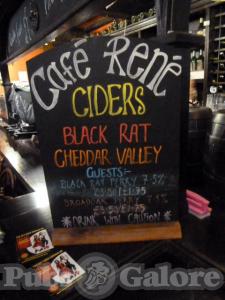 Café René
CIDERS
BLACK RAT
CHEDDAR VALLEY
GUESTS:-
BLACK RAT PERRY 7.5%
£3.50/£1.75
BROADOAK PERRY 7.5%
£3.50/£1.75
*DRINK WITH CAUTION*
Pubs Galore